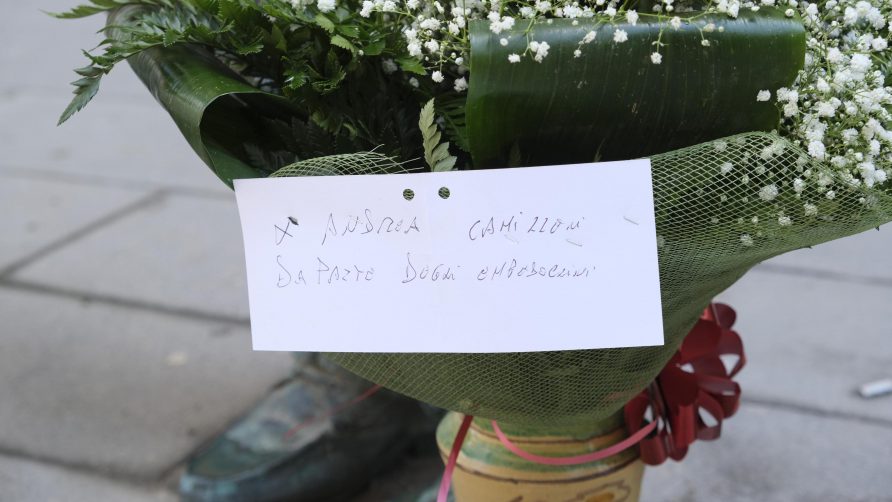 X ANDREA CAMILLERI
DA PARTE DEGLI EMPEDOCLINI